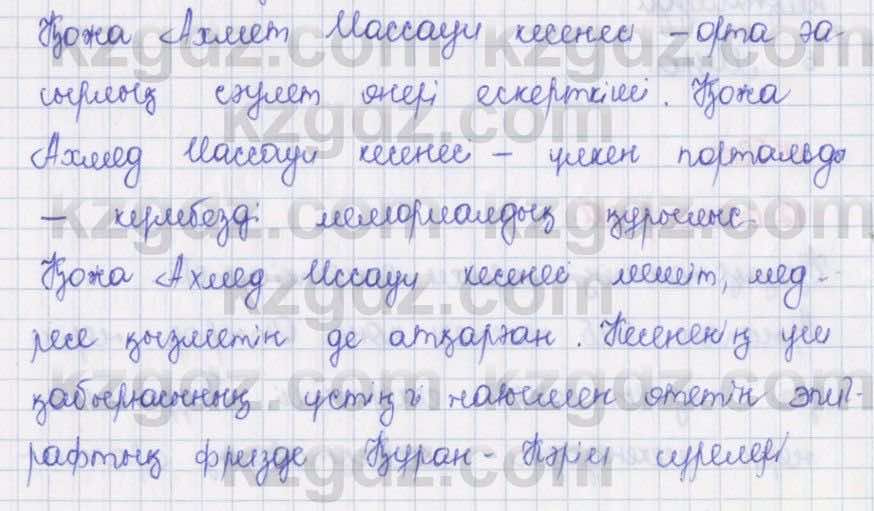 Қожа Ахмет Иассауи кесенесі – орта ға-
сырлық сәулет өнері ескерткіші. Қожа
Ахмед Иассауи кесенесі – үлкен портальды
– күмбезді мемориалдық құрылыс.
Қожа Ахмед Иссауи кесенесі мешіт, мед-
ресе қызметін де атқарған. Кесененің үш
қабырғасының үстіңгі жағымен өтетін эпиг-
рафтық фризде Құран - Кәрім сүрелері
kzgdz.com